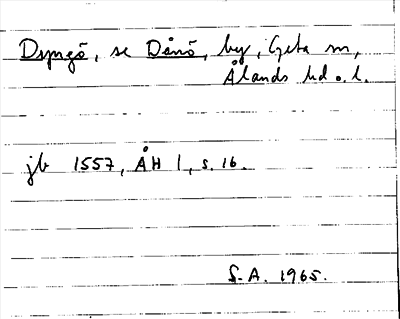 Dyngö, se Dånö, by, Geta sn,
Ålands hd o. l.
jb 1557, ÅH 1, s. 16.
S.A. 1965.